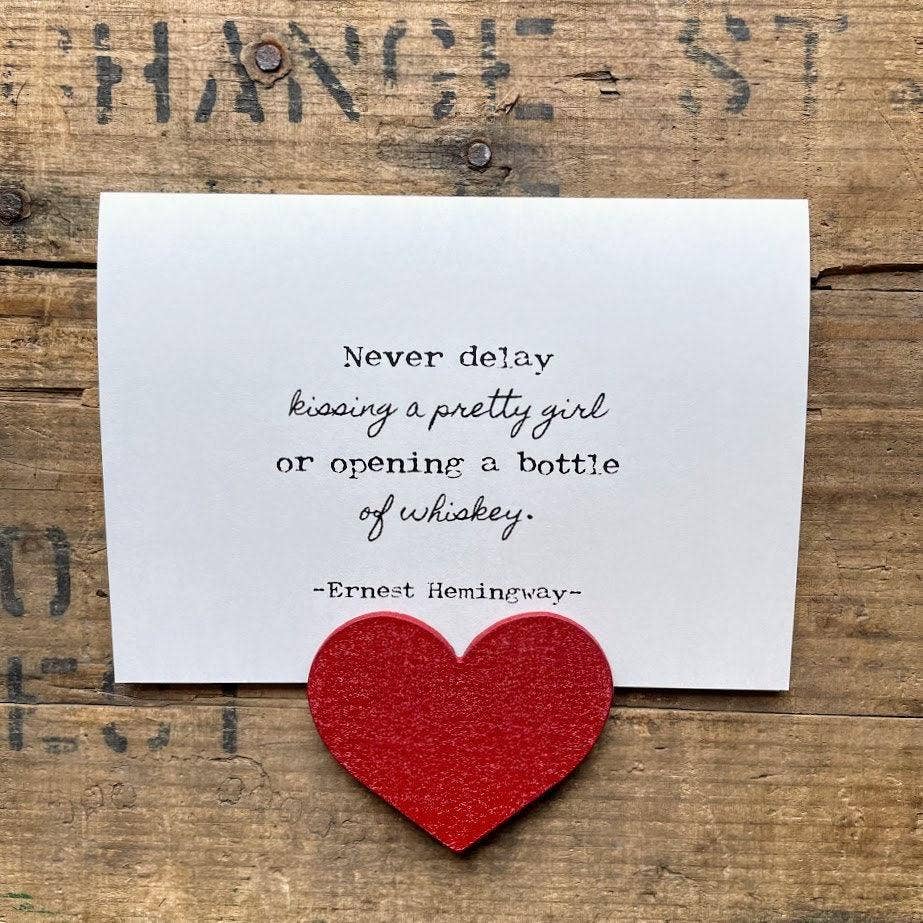 HANGE ST
Never delay
kissing a pretty girl
or opening a bottle
of whiskey.
-Ernest Hemingway-